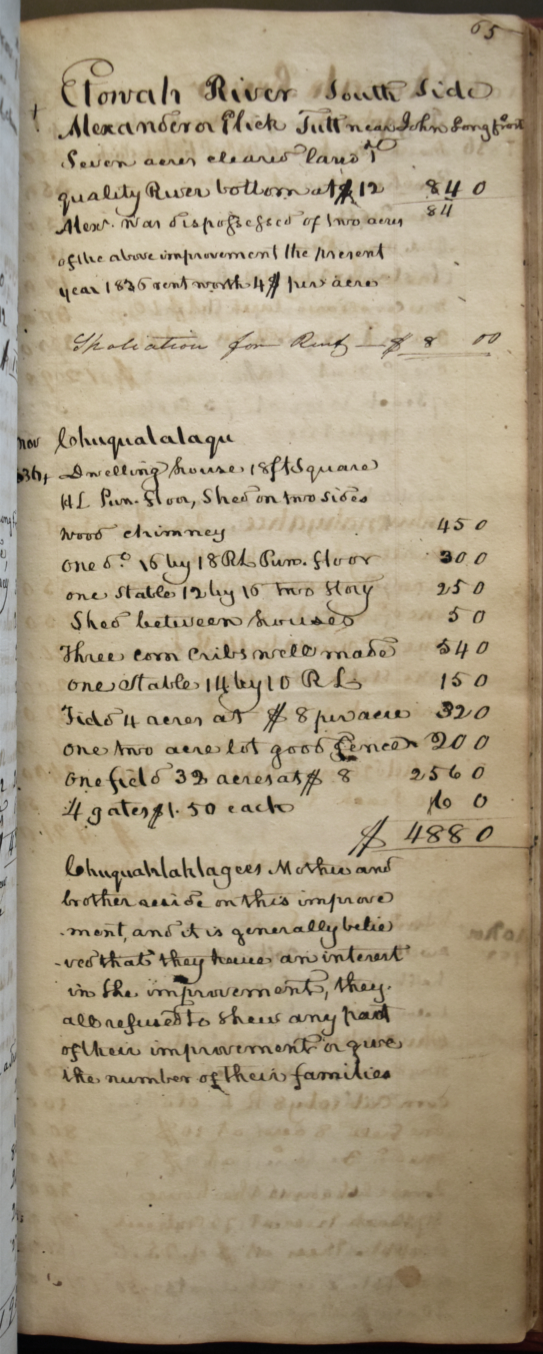 65
Etowah River South Side
Alexander or Flick Tutt near John Longfoot
Seven acres cleared land 1st
quality River bottom at $12 84 0
84
Alexr. was dispossessed of two acres
of the above improvement the present
year 1836 rent worth 4$ per acre
Spoliation for Rent — $ 8 00
nov Chuqualalagu
Dwelling house 18 ft Square
H L Pun. floor, Shed on two sides
wood chimney 45 0
one do. 16 by 18 R L Pun. floor 30 0
one Stable 12 by 16 two Story 25 0
Shed between houses 5 0
Three corn cribs well made 54 0
one Stable 14 by 10 R L 15 0
Field 4 acres at $ 8 per acre 32 0
one two acre lot good fence 20 0
one field 32 acres at $ 8 256 0
4 gates $1.50 each 6 0
$ 488 0
Chuquahlahlagees Mother and
brother reside on this improve
-ment, and it is generally belie
-ved that they have an interest
in the improvement, they
all refused to shew any part
of their improvement or give
the number of their families